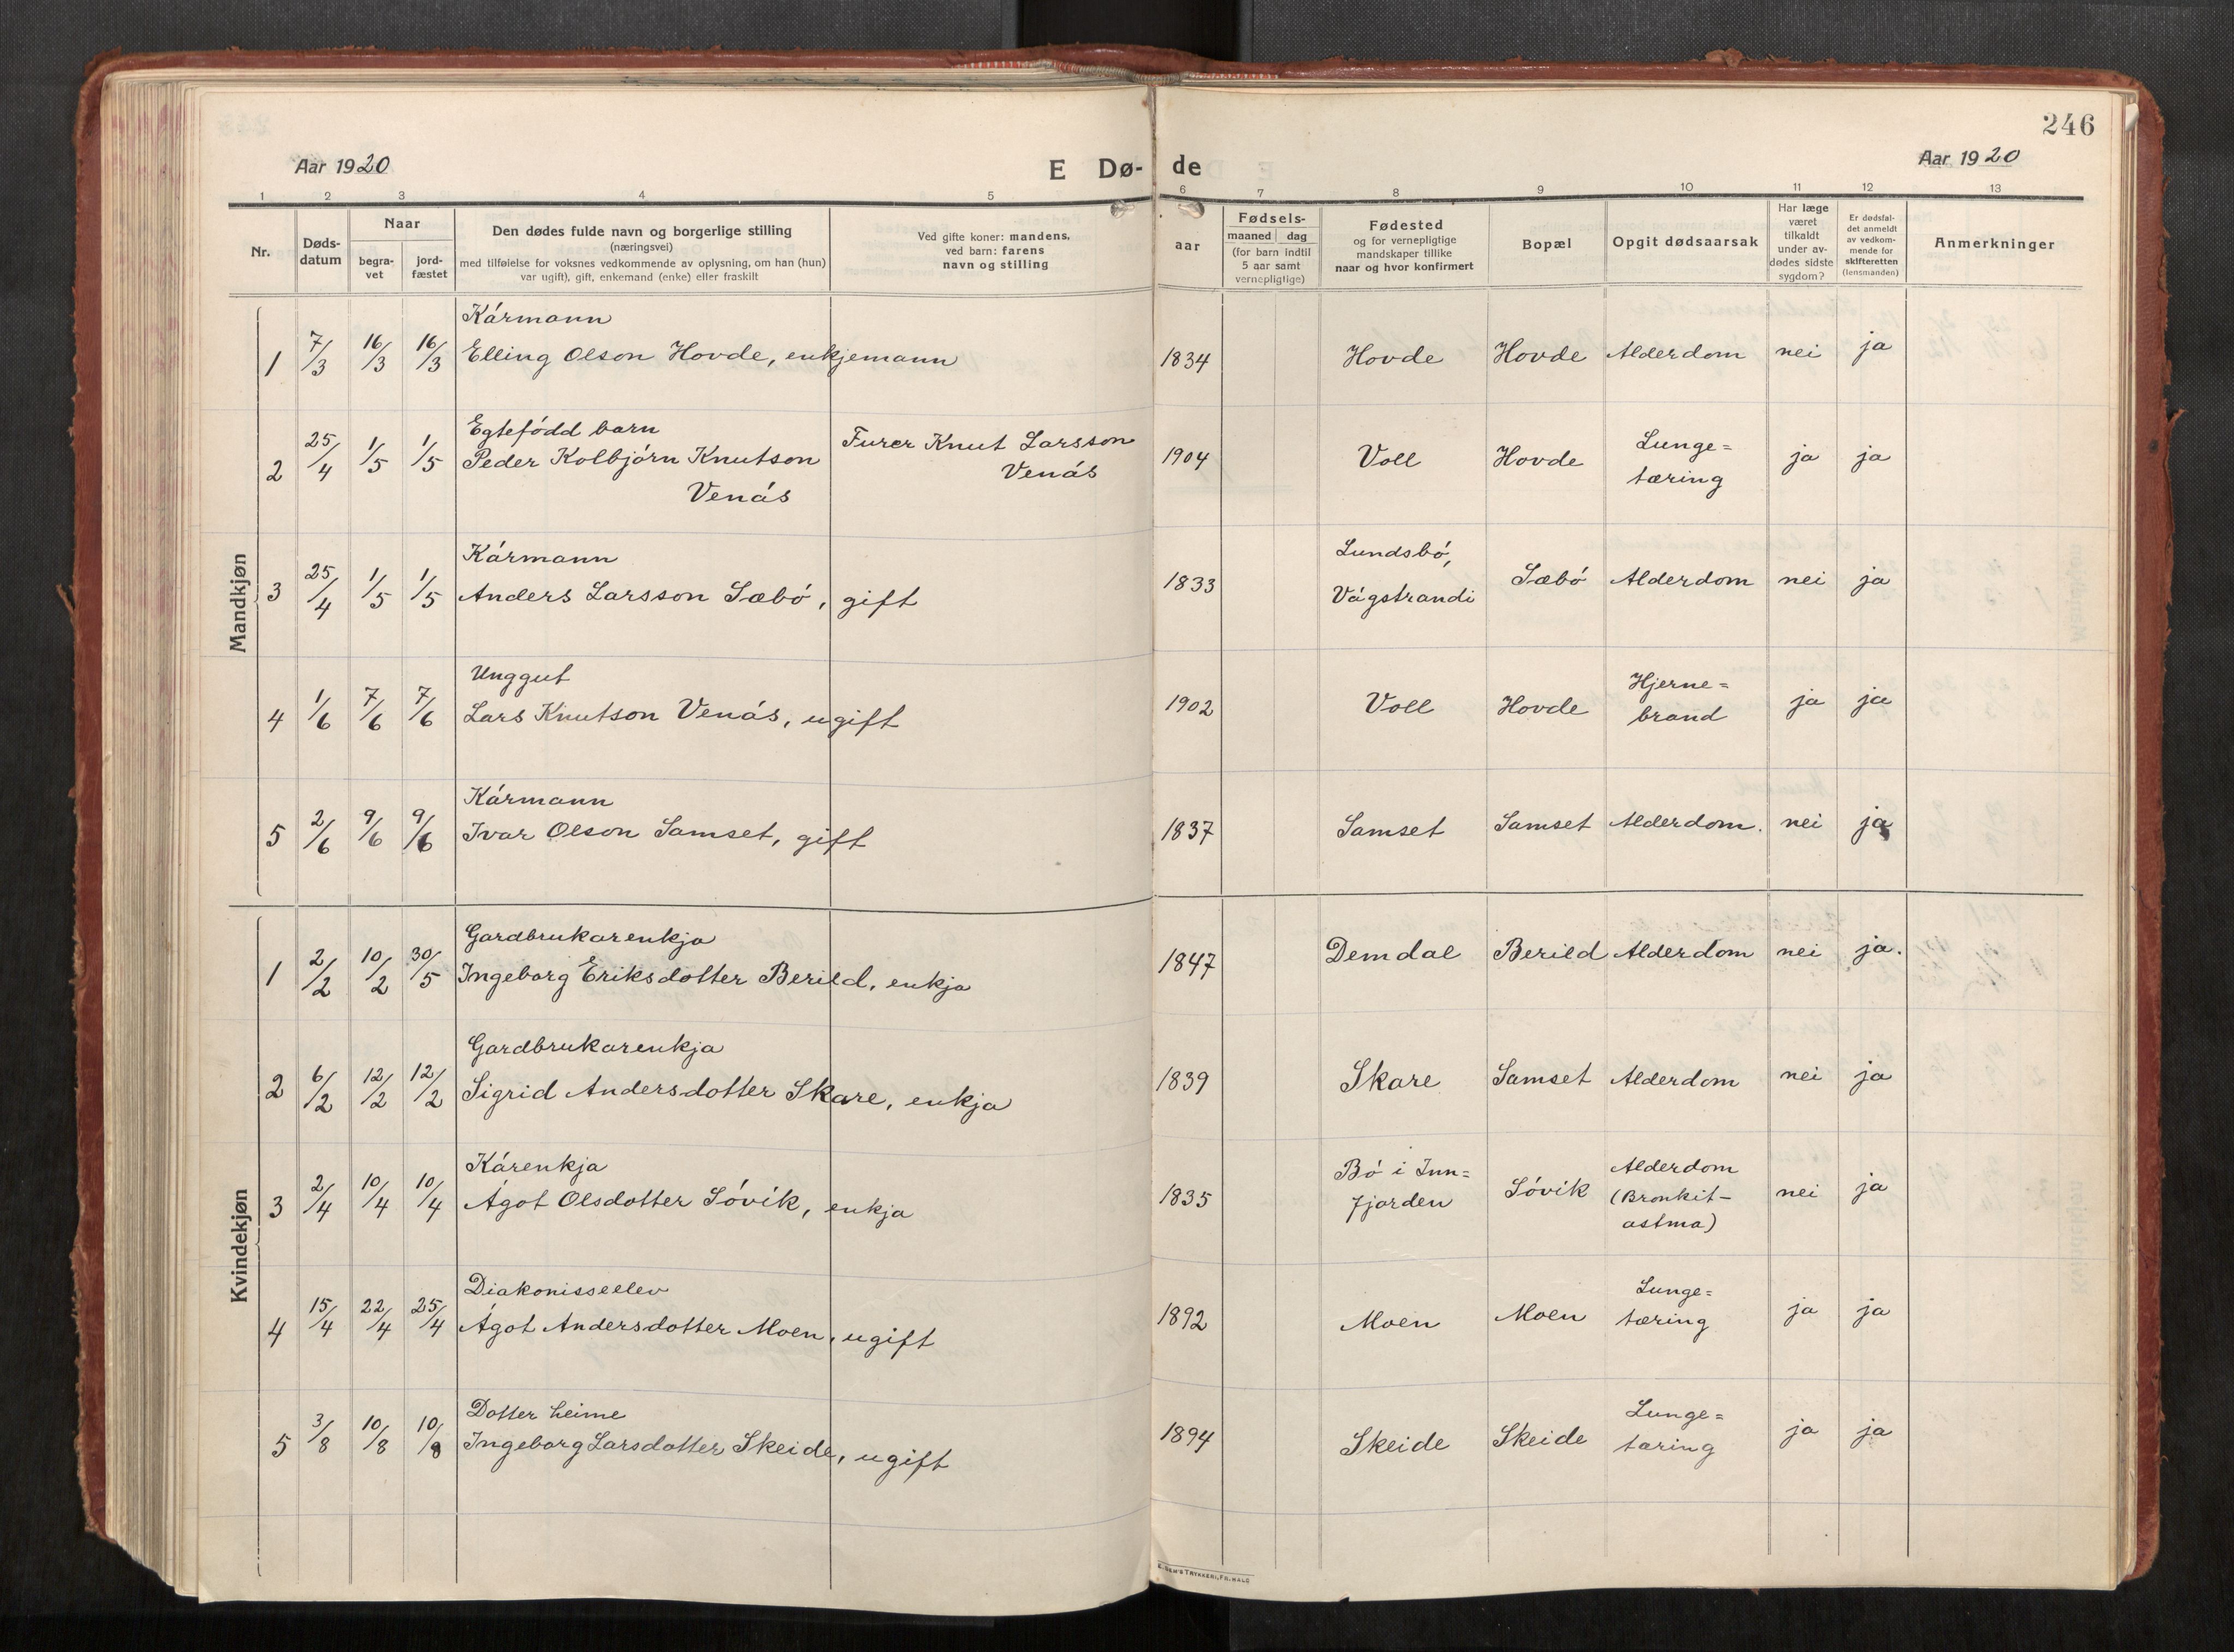 246
Aar 1920
E Dø-
de
Aar 1920
1 2 3 4 5 6 7 8 9 10 11 12 13
Nr.
Døds-
datum
Naar
begra-
vet
jord-
fæstet
Den dødes fulde navn og borgerlige stilling
(næringsvei)
med tilføielse for voksnes vedkommende av oplysning, om han (hun)
var ugift), gift, enkemand (enke) eller fraskilt
Ved gifte koner: mandens,
ved barn: farens
navn og stilling
Fødsels-
aar
maaned dag
(for barn indtil
5 aar samt
vernepligtige)
Fødested
og for vernepligtige
mandskaper tillike
naar og hvor konfirmert
Bopæl
Opgit dødsaarsak
Har læge
været
tilkaldt
under av-
dødes sidste
sygdom?
Er dødsfal-
det anmeldt
av vedkom-
mende for
skifteretten
(lensmanden)
Anmerkninger
Mandkjøn
Kármann
1 7/3 16/3 16/3 Elling Olson Hovde, enkjemann 1834 Hovde Hovde Alderdom nei ja
Egtefódd barn
2 25/4 1/5 1/5 Peder Kolbjórn Knutson
Venás
Furer Knut Larsson
Venás
1904 Voll Hovde Lunge=
tæring
ja ja
Kármann
3 25/4 1/5 1/5 Anders Larsson Sæbó, gift 1833 Lundsbó,
Vágstrandi
Sæbó Alderdom nei ja
Unggut
4 1/6 7/6 7/6 Lars Knutson Venás, ugift 1902 Voll Hovde Hjerne=
brand
ja ja
Kármann
5 2/6 9/6 9/6 Ivar Olson Samset, gift 1837 Samset Samset Alderdom. nei ja
Kvindekjøn
Gardbrukarenkja
1 2/2 10/2 30/5 Ingeborg Eriksdotter Berild, enkja 1847 Demdal Berild Alderdom nei ja.
Gardbrukarenkja
2 6/2 12/2 12/2 Sigrid Andersdotter Skare, enkja 1839 Skare Samset Alderdom nei ja
Kárenkja
3 2/4 10/4 10/4 Ágot Olsdotter Sóvik, enkja 1835 Bó i Inn=
fjorden
Sóvik Alderdom
(Bronkit-
astma)
nei ja
Diakonisseelev
4 15/4 22/4 25/4 Ágot Andersdotter Moen, ugift 1892 Moen Moen Lunge=
tæring
ja ja
Dotter heime
5 3/8 10/8 10/8 Ingeborg Larsdotter Skeide, ugift 1894 Skeide Skeide Lunge=
tæring
ja ja
TRYKKERI, FR.HALD